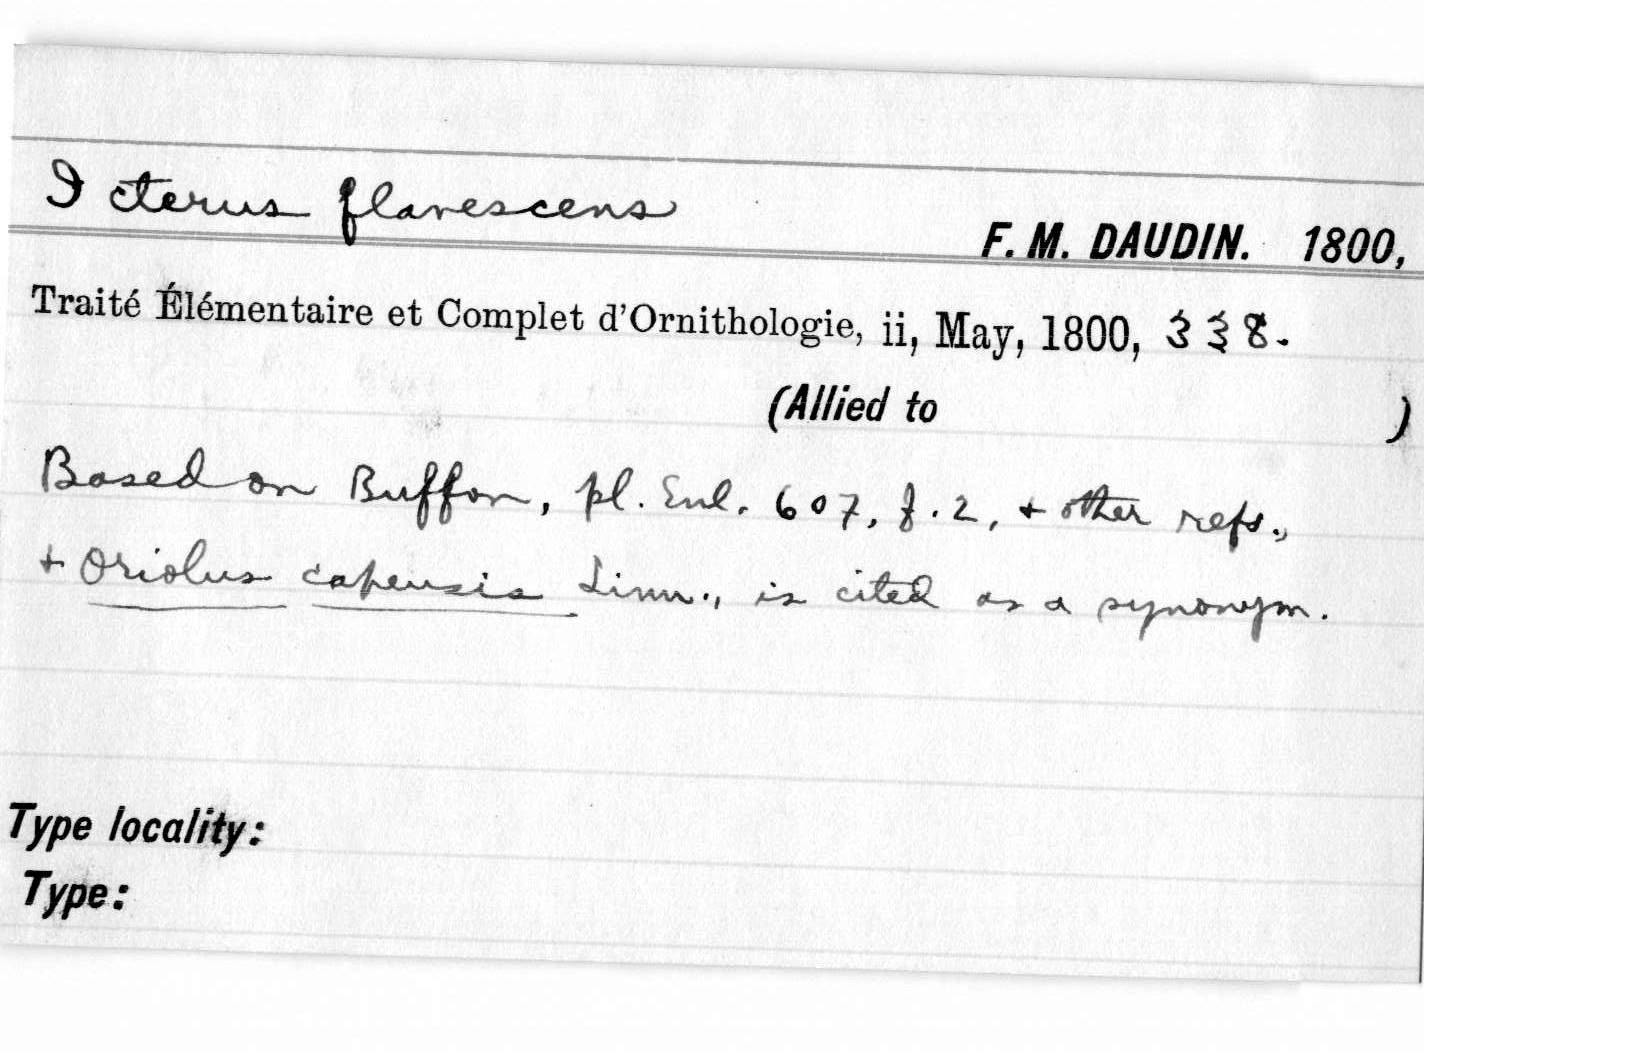 Icterus flavescens
F. M. DAUDIN. 1800,
Traité Élémentaire et Complet d'Ornithologie, ii, May, 1800, 338.
(Allied to )
Based on Buffon, pl. Enl. 607, f. 2, + other refs.,
+ Oriolus capensis Linn., is cited as a synonym.
Type locality:
Type: